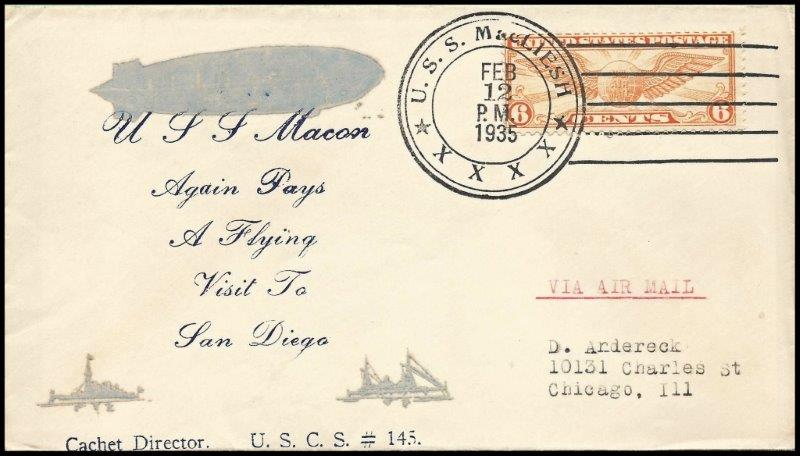 U. S. S. MacLIESH
FEB
12
P.M.
1935
X X X X
UNITED STATES POSTAGE
6 CENTS 6
U S S Macon
Again Pays
A Flying
Visit To
San Diego
VIA AIR MAIL
D. Andereck
10131 Charles St
Chicago, Ill
Cachet Director. U. S. C. S. # 145.